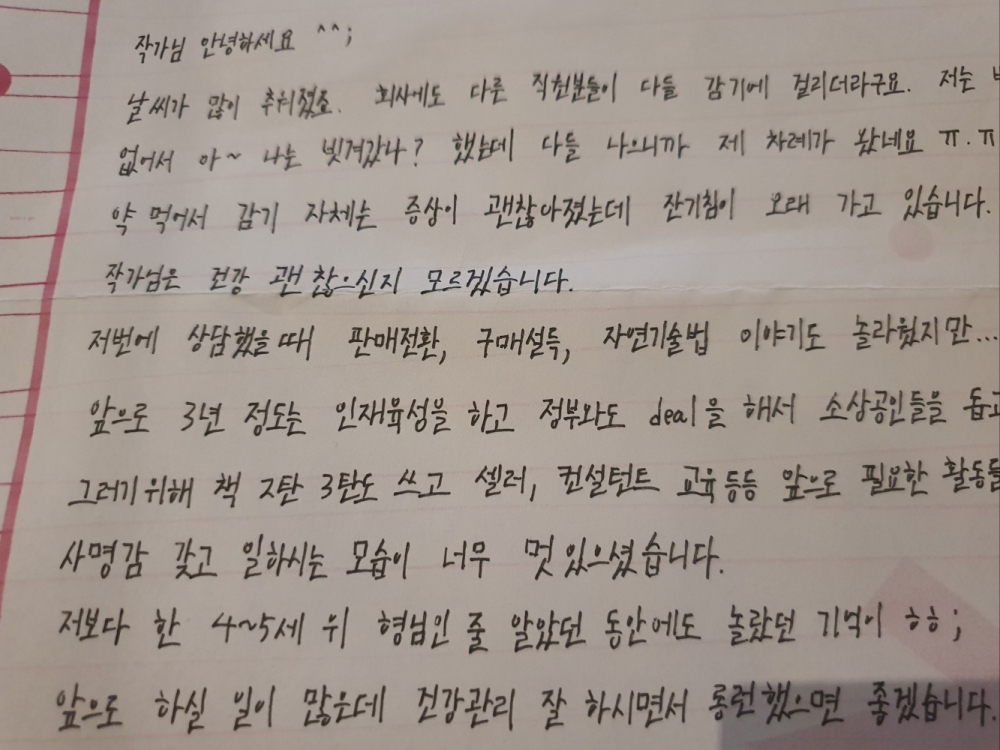 작가님 안녕하세요 ^^;
날씨가 많이 추워졌죠. 회사에도 다른 직원분들이 다들 감기에 걸리더라구요. 저는
없어서 아~ 나는 빗겨갔나? 했는데 다들 나으니까 제 차례가 왔네요 ㅠ.ㅠ
약 먹어서 감기 자체는 증상이 괜찮아졌는데 잔기침이 오래 가고 있습니다.
작가님은 건강 괜찮으신지 모르겠습니다.
저번에 상담했을때 판매전환, 구매설득, 자연기술법 이야기도 놀라웠지만...
앞으로 3년 정도는 인재육성을 하고 정부와도 deal을 해서 소상공인들을 돕고
그러기위해 책 2탄 3탄도 쓰고 셀러, 컨설턴트 교육등등 앞으로 필요한 활동들
사명감 갖고 일하시는 모습이 너무 멋있으셨습니다.
저보다 한 4~5세 위 형님인 줄 알았던 동안에도 놀랐던 기억이 ㅎㅎ;
앞으로 하실 일이 많은데 건강관리 잘 하시면서 롱런했으면 좋겠습니다.